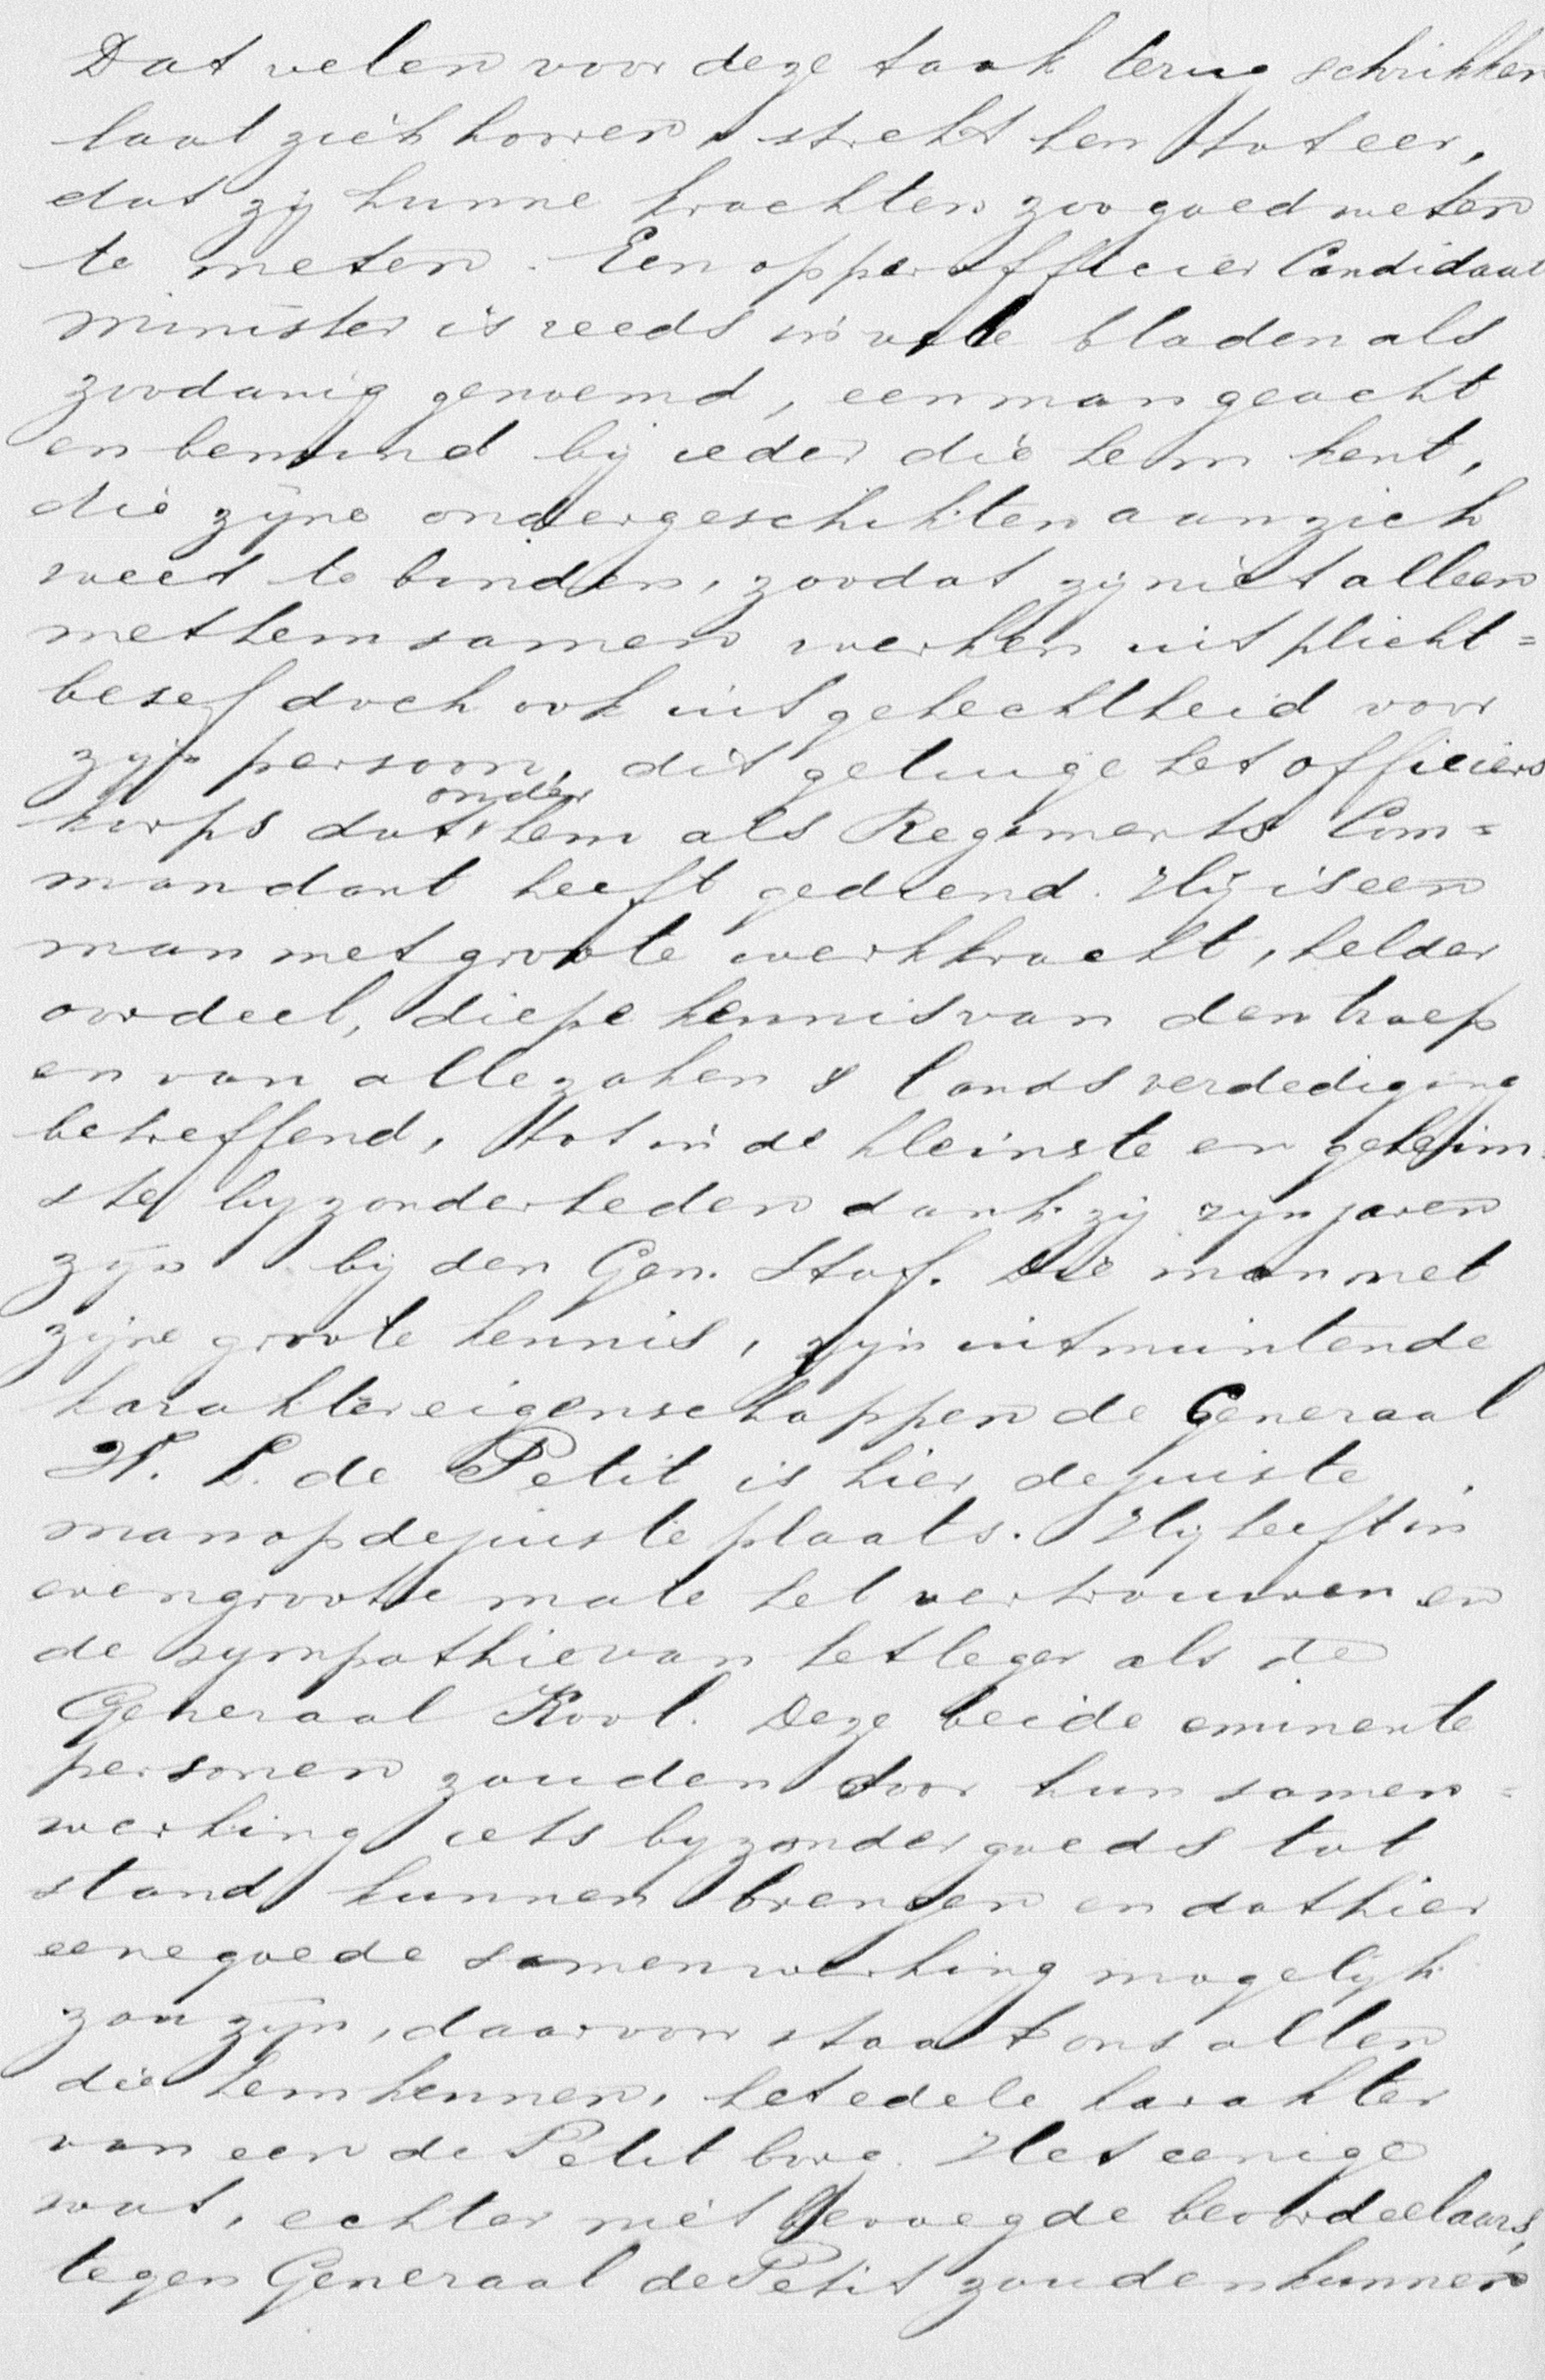 Dat velen voor deze taak terug schrikken
laat zich hooren, strekt hen tot eer,
dat zij hunne krachten zoo goed weten
te meten. Een opperofficier Candidaat
minister is reeds in vele bladen als
zoodanig genoemd, een man geacht
en bemind bij ieder die hem kent,
die zijne ondergeschikten aan zich
weet te binden, zoodat zij niet alleen
met hem samen werken uit plicht=
besef doch ook uit gehechtheid voor
zijn persoon, dit getuige het officiers
korps dat onder hem als Regiments Com=
mandant heeft gediend. Hij is een
man met groote werkkracht, helder
oordeel, diepe kennis van den troep
en van alle zaken 's lands verdediging
betreffend, tot in de kleinste en geheim=
ste byzonderheden dank zij zijn jaren
zijn bij den Gen. Staf. Die man met
zijne groote kennis, zijn uitmuntende
karaktereigenschappen de Generaal
W. L. de Petit is hier de juiste
man op de juiste plaats. Hij heeft in
evengroote mate het vertrouwen en
de sympathie van het leger als de
Generaal Kool. Deze beide eminente
personen zouden door hun samen=
werking iets byzonder goeds tot
stand kunnen brengen en dat hier
eene goede samenwerking mogelijk
zou zijn, daarvoor staat ons allen
die hem kennen, het edele karakter
van een de Petit borg. Het eenige
wat, echter niet bevoegde beoordeelaars,
tegen Generaal de Petit zouden kunnen